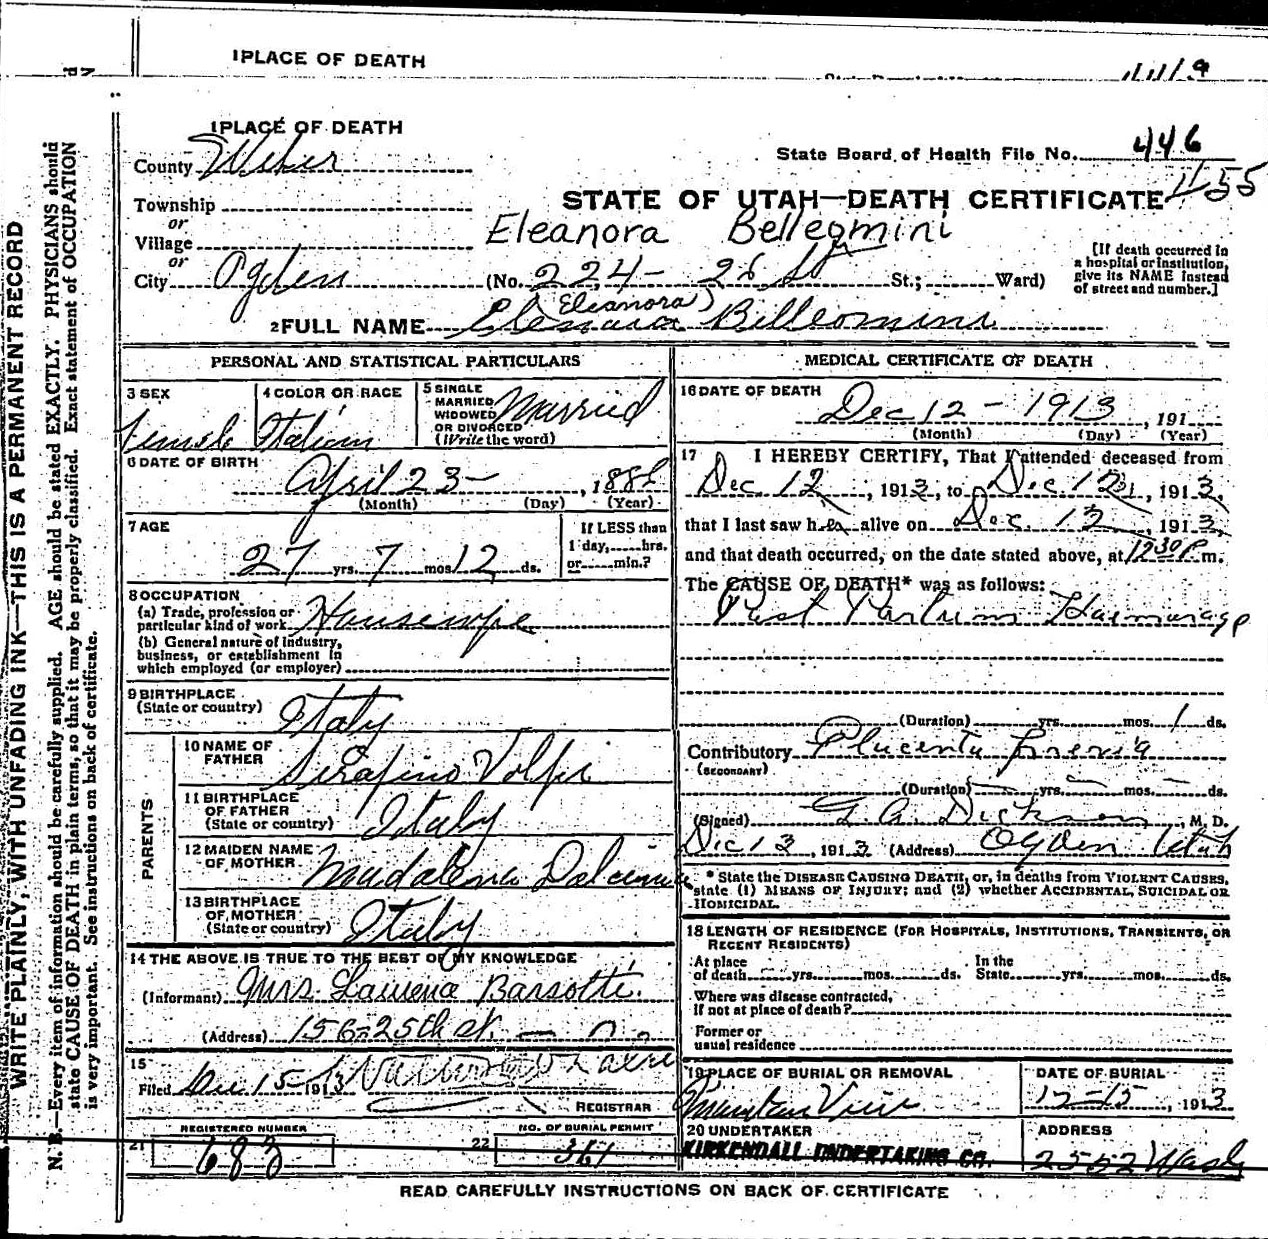 1 PLACE OF DEATH
1119
1 PLACE OF DEATH
County Weber
State Board of Health File No. 446
1155
STATE OF UTAH—DEATH CERTIFICATE
Township
or
Village
Eleanora Belleomini
or
City Ogden (No. 224 - 26 St St.; Ward)
[If death occurred in
a hospital or institution,
give its NAME instead
of street and number.]
(Eleanora)
2 FULL NAME Billeomini
PERSONAL AND STATISTICAL PARTICULARS
3 SEX
female
4 COLOR OR RACE
Italian
5 SINGLE
MARRIED
WIDOWED
OR DIVORCED
(Write the word)
Married
6 DATE OF BIRTH
April 23 - , 188
(Month) (Day) (Year)
7 AGE
27 yrs. 7 mos. 12 ds.
If LESS than
1 day, hrs.
or min.?
8 OCCUPATION
(a) Trade, profession or
particular kind of work Housewife
(b) General nature of industry,
business, or establishment in
which employed (or employer)
9 BIRTHPLACE
(State or country) Italy
PARENTS
10 NAME OF
FATHER Serafino Volpi
11 BIRTHPLACE
OF FATHER
(State or country) Italy
12 MAIDEN NAME
OF MOTHER Madalena
13 BIRTHPLACE
OF MOTHER
(State or country) Italy
14 THE ABOVE IS TRUE TO THE BEST OF MY KNOWLEDGE
(Informant) Mrs Barsotti
(Address) 156-25th st.
15
Filed Dec 15 - 1913
REGISTRAR
REGISTERED NUMBER
21 683
NO. OF BURIAL PERMIT
22 361
MEDICAL CERTIFICATE OF DEATH
16 DATE OF DEATH
Dec 12 - 1913 , 191
(Month) (Day) (Year)
17 I HEREBY CERTIFY, That I attended deceased from
Dec. 12 , 1913, to Dec. 12, 1913.
that I last saw her alive on Dec. 12 , 1913
and that death occurred, on the date stated above, at 12 30 P. m.
The CAUSE OF DEATH* was as follows:
Post Partum Haemorage
(Duration) yrs. mos. 1 ds.
Contributory Placenta previa
(SECONDARY)
(Duration) yrs. mos. ds.
(Signed) G. A. Dickson , M. D.
Dec 13 , 1913 (Address) Ogden Utah
* State the DISEASE CAUSING DEATH, or, in deaths from VIOLENT CAUSES,
state (1) MEANS OF INJURY; and (2) whether ACCIDENTAL, SUICIDAL OR
HOMICIDAL.
18 LENGTH OF RESIDENCE (FOR HOSPITALS, INSTITUTIONS, TRANSIENTS, OR
RECENT RESIDENTS)
At place
of death yrs. mos. ds.
In the
State yrs. mos. ds.
Where was disease contracted,
If not at place of death?
Former or
usual residence
19 PLACE OF BURIAL OR REMOVAL
Mountain View
DATE OF BURIAL
12-15 , 1913
20 UNDERTAKER
KIRKENDALL UNDERTAKING CO.
ADDRESS
2552 Wash
READ CAREFULLY INSTRUCTIONS ON BACK OF CERTIFICATE
WRITE PLAINLY, WITH UNFADING INK—THIS IS A PERMANENT RECORD
N. B.—Every item of information should be carefully supplied. AGE should be stated EXACTLY. PHYSICIANS should
state CAUSE OF DEATH in plain terms, so that it may be properly classified. Exact statement of OCCUPATION
is very important. See instructions on back of certificate.